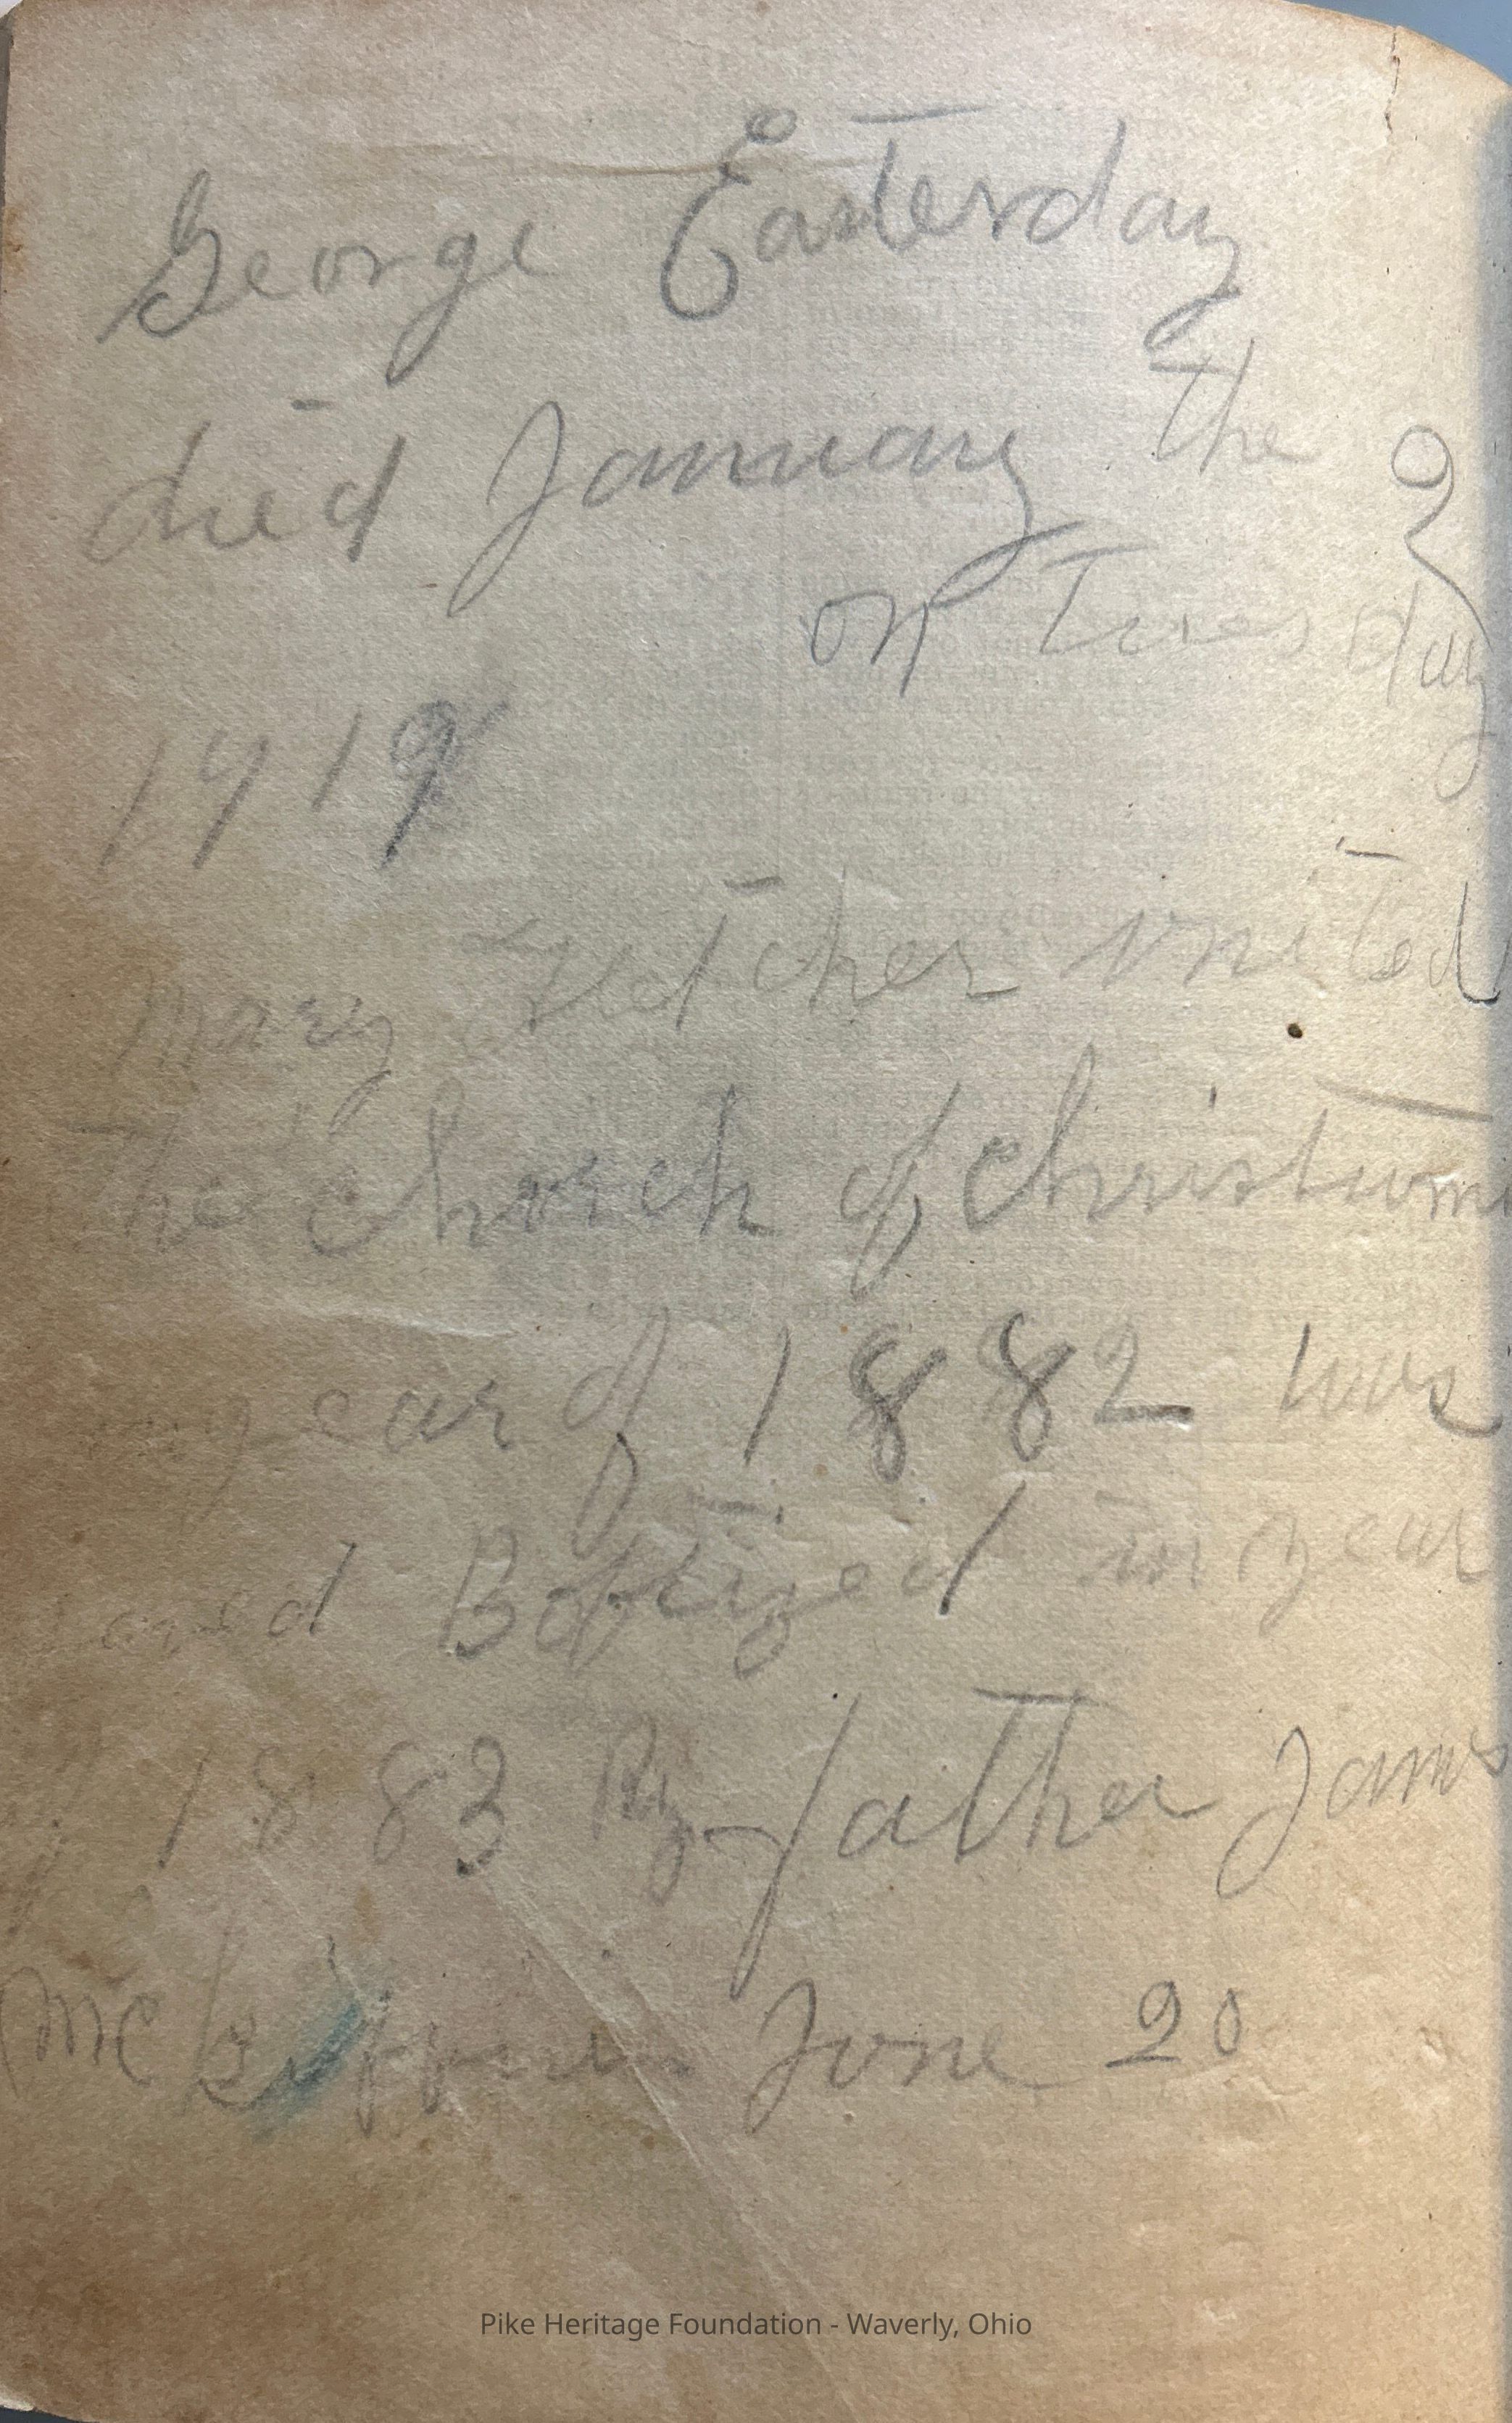 George Easterday
died January the 9
on Tuesday
1919
Mary united
the Chorch of Christ
year of 1882 was
and Boptized in year
1883 By father Jams
June 20
Pike Heritage Foundation - Waverly, Ohio